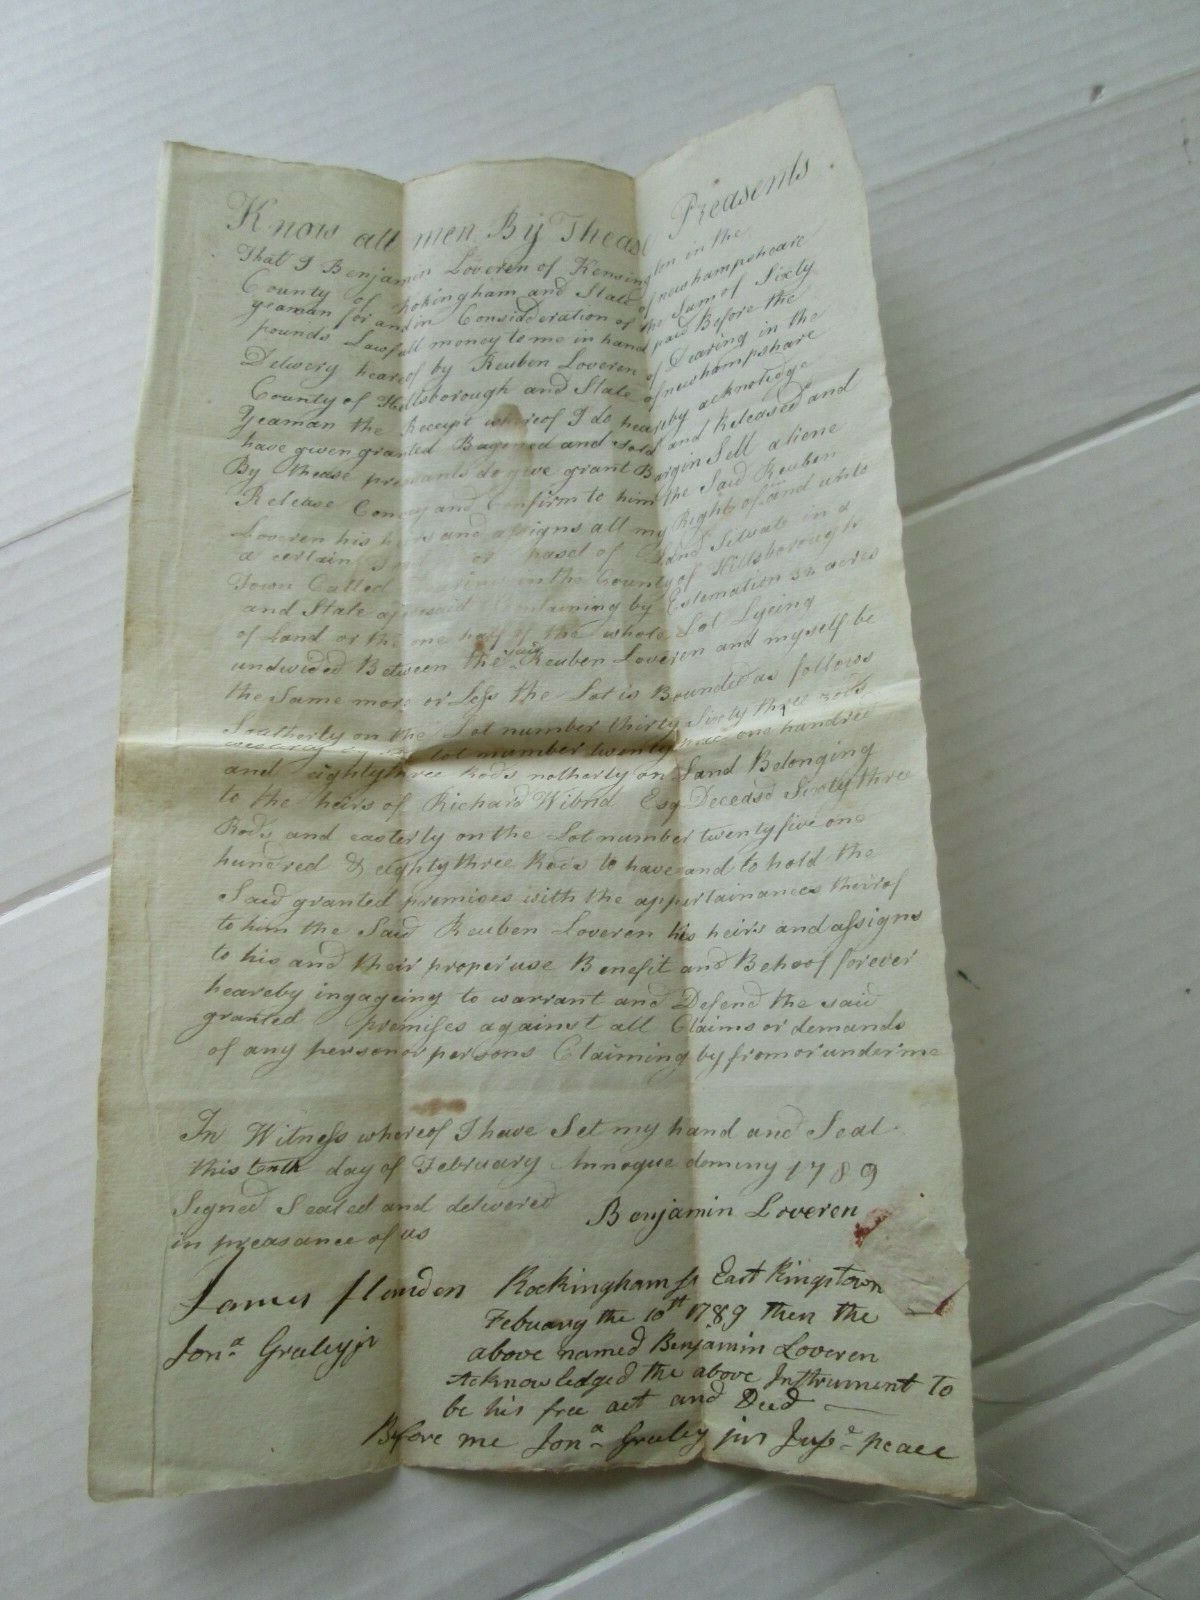 Know all men By Thease Preasents
That I Benjamin Loveren of Kensington in the
County of Rokingham and State of newhampsheare
yeaman for and in Consideration of the Sum of Sixty
pounds Lawfull money to me in hand paid Before the
Delivery heareof by Reuben Loveren of Dearing in the
County of Hillsborough and State of newhampshare
Yeaman the Receipt whereof I do heareby acknoledge
have given granted Bagened and sold and Released and
By thease presants do give grant Bargin Sell aliene
Release Convey and Confirm to him the Said Reuben
Loveren his heirs and assigns all my Right of in and unto
a certain or parsel of Land Situate in a
Town Called Dearing in the County of Hillsborough
and State aforesaid Containing by Estemation 32 acres
of Land or the one half of the whole Lot Lyeing
undivided Between the said Reuben Loveren and myself be
the Same more or Less the Lot is Bounded as follows
Southerly on the Lot number thirty Sixty three rods
westerly by the lot number twenty three one hundred
and eightythree Rods notherly on Land Belonging
to the heirs of Richard Wibrd Esq Deceasd Sixty three
Rods and easterly on the Lot number twenty five one
hundred & eighty three Rods to have and to hold the
Said granted premises with the appertainances theirof
to him the Said Reuben Loveren his heirs and assigns
to his and their proper use Benefit and Behoof forever
heareby ingageing to warrant and Defend the said
granted premises against all Claims or demands
of any person or persons Claiming by from or under me
In Witness whereof I have Set my hand and Seal
this tenth day of February Annoque doming 1789
Signed Sealed and delivered
in preasance of us
Benjamin Loveren
James
Jona Greley jr
Rockingham ss East Kingstown
Febuary the 10st 1789 then the
above named Benjamin Loveren
Acknowledged the above Instrument to
be his free act and Deed
Before me Jona Greley jur Juse peace